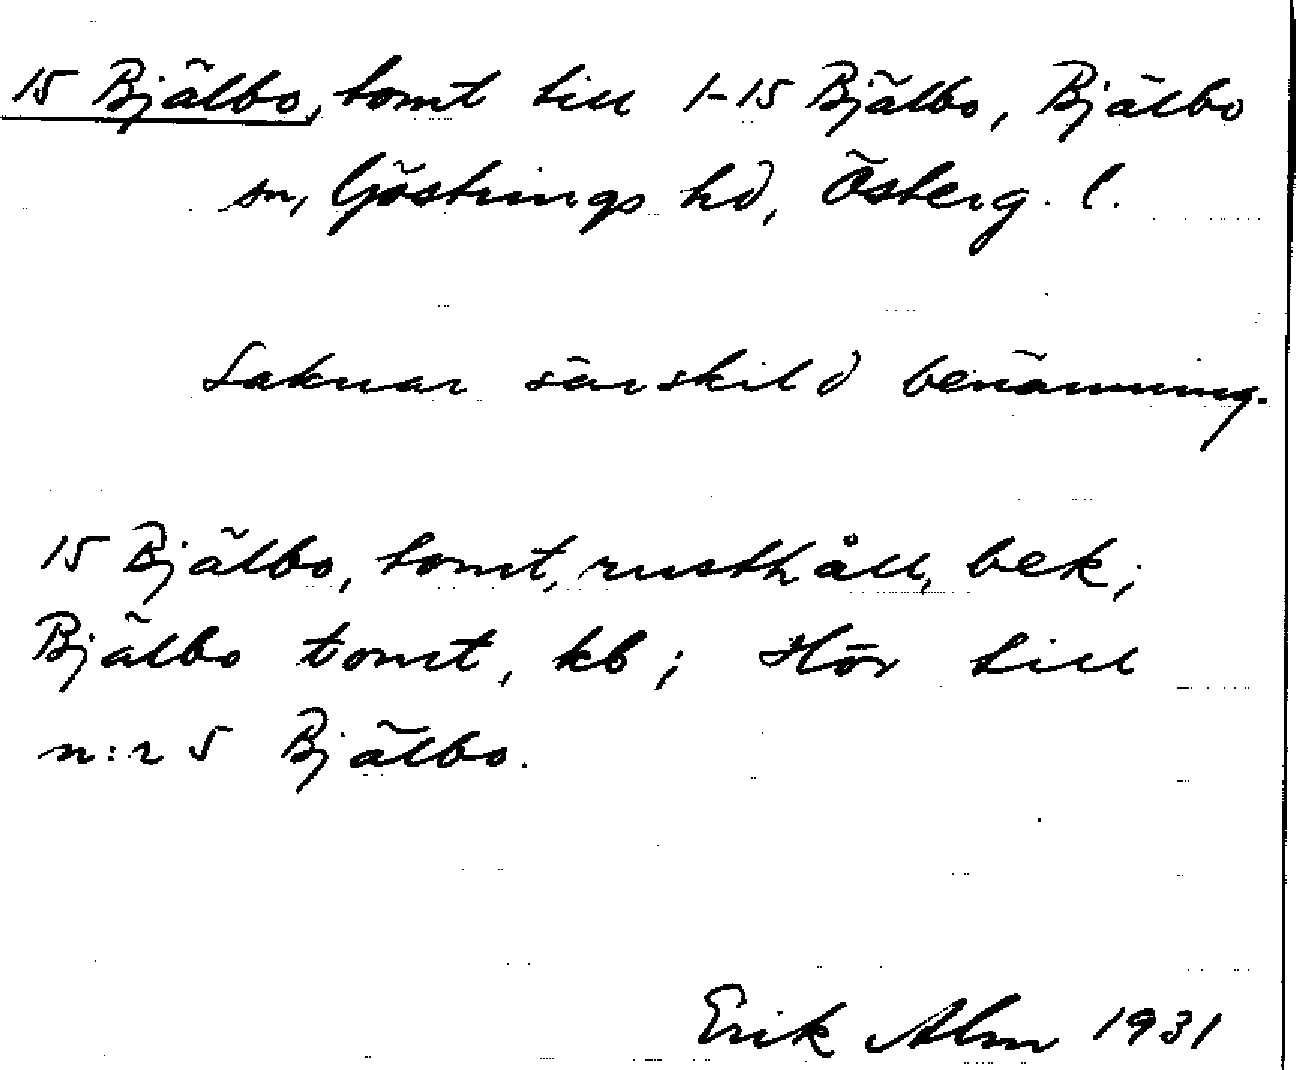 15 Bjälbo, tomt till 1-15 Bjälbo, Bjälbo
sn, Göstrings hd, Österg. l.
Saknar särskild benämning.
15 Bjälbo, tomt, rusthåll, bek;
Bjälbo tomt, kb; Hör till
n:r 5 Bjälbo.
Erik Alm 1931